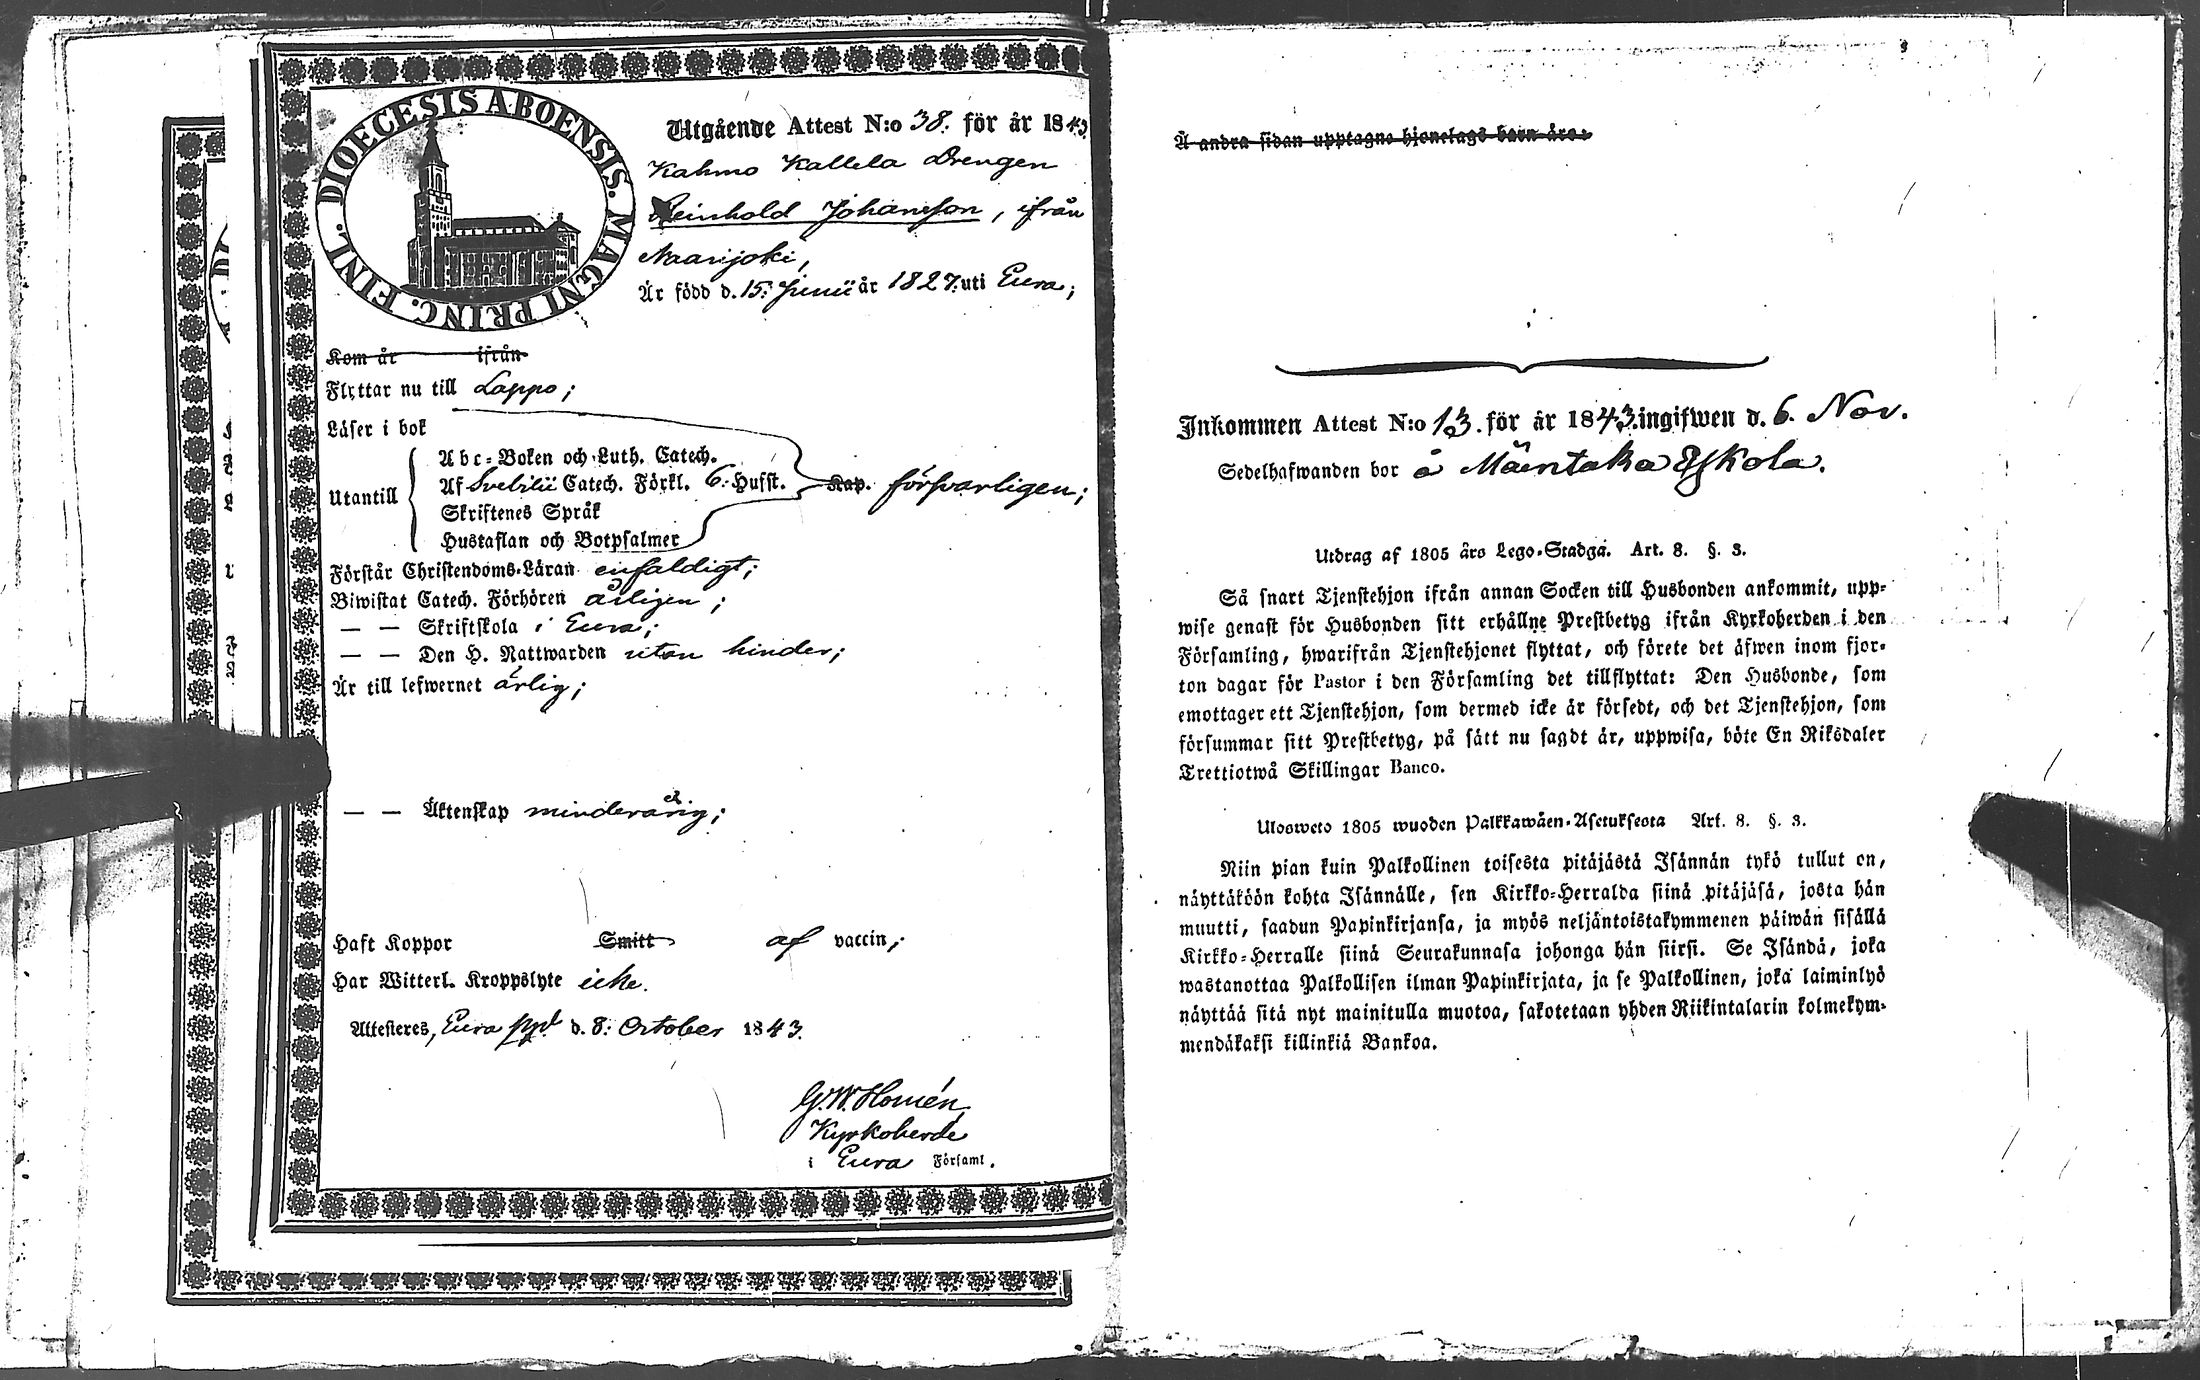 DIOECESIS ABOENSIS. MAGNI PRINC. FINL.
Utgående Attest N:o 38. för år 1843.
Kahmo Kallela Drengen
Reinhold Johansson, ifrån
Naarijoki,
Är född d. 15. Junii år 1827. uti Eura;
Kom år ifrån
Flyttar nu till Lappo;
Läser i bok
Utantill
Abc-Boken och Luth. Catech.
Af Svebilii Catech. Förkl. 6. Hufst. Kap. försvarligen;
Skriftenes Språk
Hustaflan och Botpsalmer
Förstår Christendoms-Läran enfaldigt;
Biwistat Catech. Förhören årligen;
— — Skriftskola i Eura;
— — Den H. Nattwarden utan hinder;
Är till lefwernet ärlig;
— — Äktenskap minderårig;
Haft Koppor Smitt af vaccin;
Har Witterl. Kroppslyte icke.
Attesteres, Eura ppd d. 8: October 1843.
G.W. Homén
Kyrkoherde
i Eura Församl.
Å andra sidan upptagne hjonelags barn äro:
Inkommen Attest N:o 13. för år 1843. ingifwen d. 6. Nov.
Sedelhafwanden bor å Mäentaka Eskola.
Utdrag af 1805 års Lego-Stadga. Art. 8. §. 3.
Så snart Tjenstehjon ifrån annan Socken till Husbonden ankommit, upp-
wise genast för Husbonden sitt erhållne Prestbetyg ifrån Kyrkoherden i den
Församling, hwarifrån Tjenstehjonet flyttat, och förete det äfwen inom fjor-
ton dagar för Pastor i den Församling det tillflyttat: Den Husbonde, som
emottager ett Tjenstehjon, som dermed icke är försedt, och det Tjenstehjon, som
försummar sitt Prestbetyg, på sätt nu sagdt är, uppwisa, böte En Riksdaler
Trettiotwå Skillingar Banco.
Ulosweto 1805 wuoden Palkkawäen-Asetuksesta Art. 8. §. 3.
Niin pian kuin Palkollinen toisesta pitäjästä Isännän tykö tullut on,
näyttäköön kohta Isännälle, sen Kirkko-Herralda siinä pitäjäsä, josta hän
muutti, saadun Papinkirjansa, ja myös neljäntoistakymmenen päiwän sisällä
Kirkko-Herralle siinä Seurakunnasa johonga hän siirsi. Se Isändä, joka
wastanottaa Palkollisen ilman Papinkirjata, ja se Palkollinen, joka laiminlyö
näyttää sitä nyt mainitulla muotoa, sakotetaan yhden Riikintalarin kolmekym-
mendäkaksi killinkiä Bankoa.